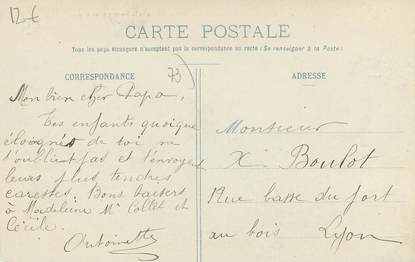 12€
CARTE POSTALE
Tous les pays étrangers n'acceptent pas la correspondance au recto (Se renseigner à la Poste)
CORRESPONDANCE
73
ADRESSE
Mon bien cher Papa,
Tes enfants quoique
éloognés de toi ne
t'oublient pas et t'envoyent
leurs plus tendres
caresses. Bons baisers
à Madeleine Mr Collet et
Cécile.
Antoinette
Monsieur
X Boulot
Rue basse du port
au bois Lyon